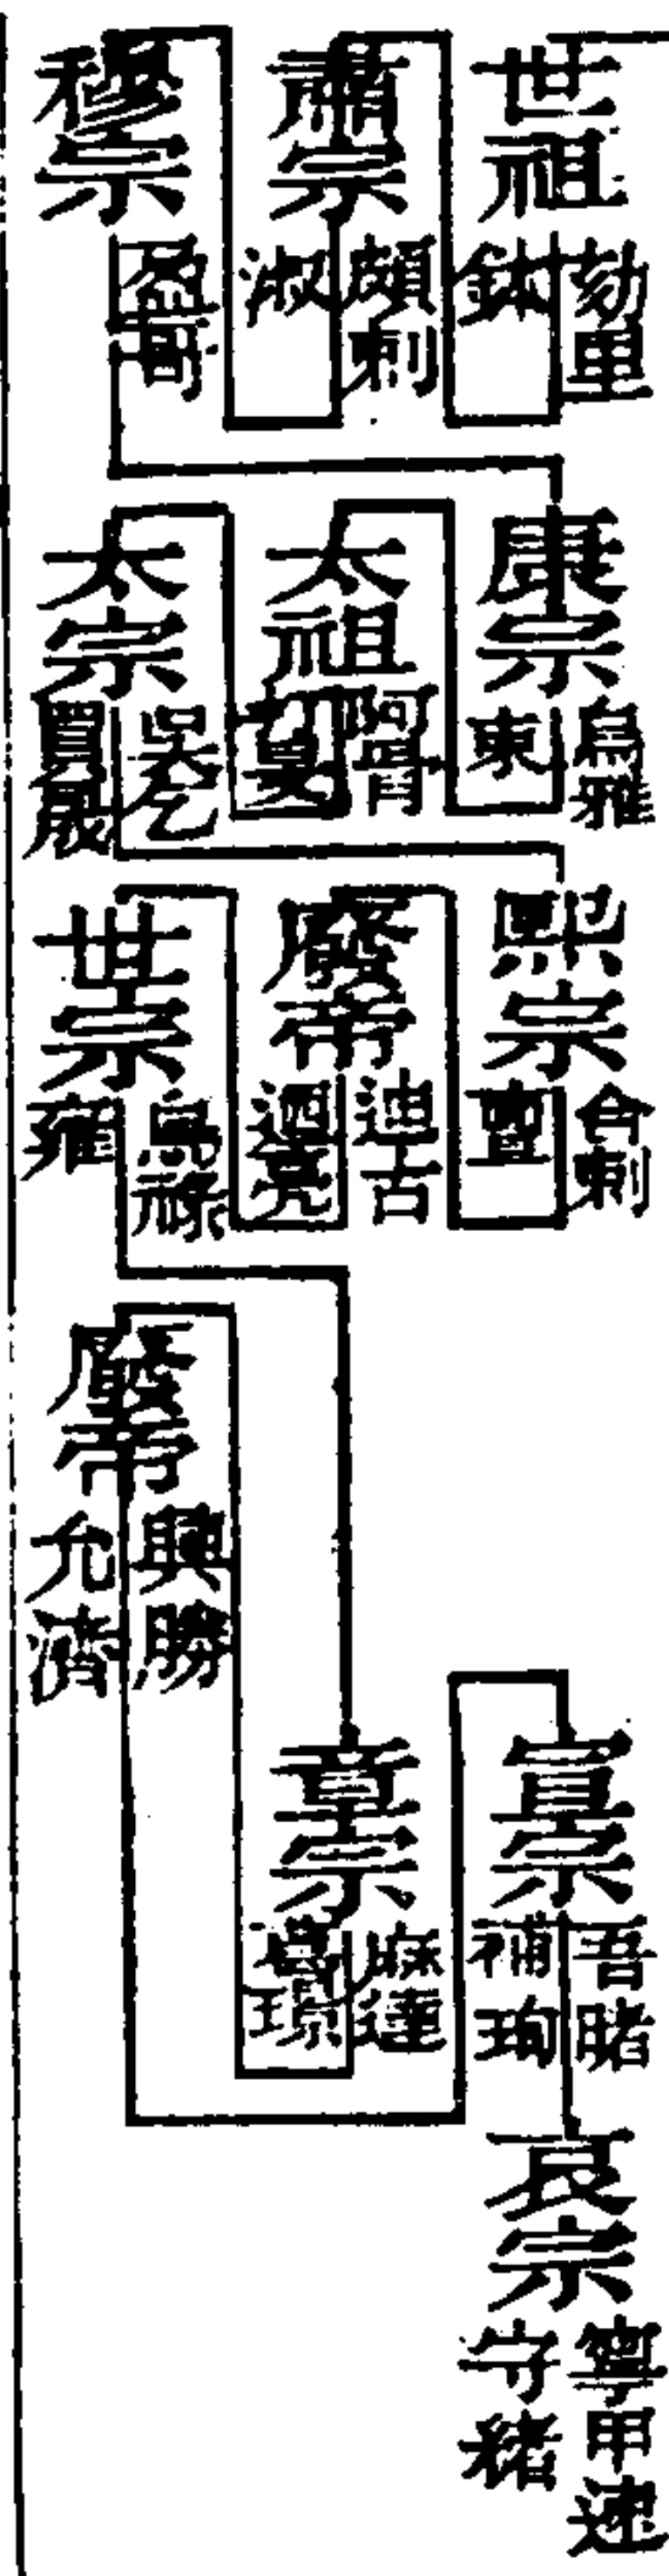 世祖 劾里鉢
肅宗 頗剌淑
穆宗 盈哥
康宗 烏雅束
太祖 阿骨打旻
太宗 吳乞買晟
熙宗 合剌亶
廢帝 迪古迺亮
世宗 烏祿雍
廢帝 興勝允濟
章宗 麻達葛璟
宣宗 吾睹補珣
哀宗 寧甲速守緒